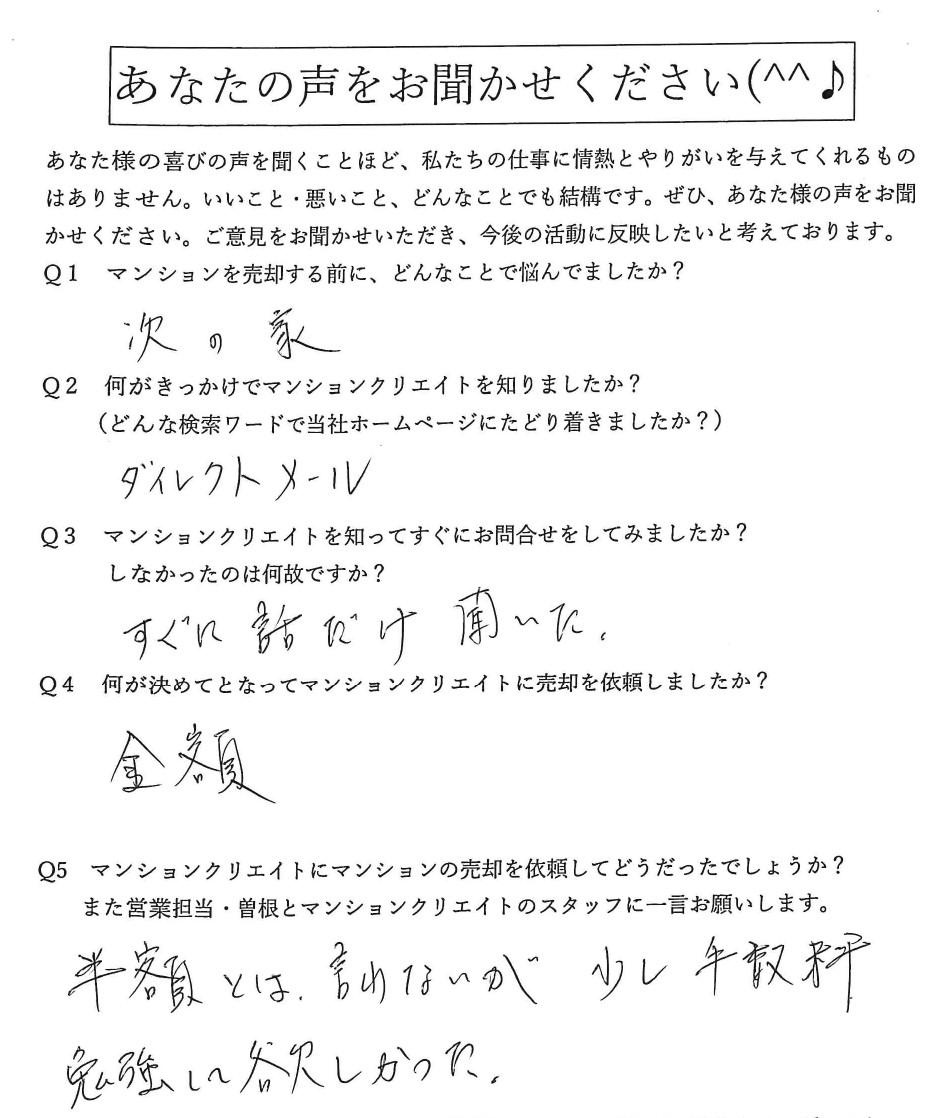 あなたの声をお聞かせください(^^♪
あなた様の喜びの声を聞くことほど、私たちの仕事に情熱とやりがいを与えてくれるもの
はありません。いいこと・悪いこと、どんなことでも結構です。ぜひ、あなた様の声をお聞
かせください。ご意見をお聞かせいただき、今後の活動に反映したいと考えております。
Q1 マンションを売却する前に、どんなことで悩んでましたか？
次の家
Q2 何がきっかけでマンションクリエイトを知りましたか？
（どんな検索ワードで当社ホームページにたどり着きましたか？）
ダイレクトメール
Q3 マンションクリエイトを知ってすぐにお問合せをしてみましたか？
しなかったのは何故ですか？
すぐに話だけ聞いた。
Q4 何が決めてとなってマンションクリエイトに売却を依頼しましたか？
金額
Q5 マンションクリエイトにマンションの売却を依頼してどうだったでしょうか？
また営業担当・曽根とマンションクリエイトのスタッフに一言お願いします。
半額とは、言わないが 少し手数料
勉強して欲しかった。